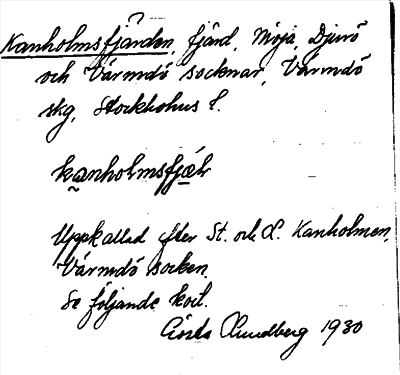 Kanholmsfjärden, fjärd, Möja, Djurö
och Värmdö socknar, Värmdö
skg, Stockholms l.
kanholmsfjäḷ
Uppkallad efter St. och L. Kanholmen,
Värmdö socken.
Se följande kort.
Gösta Lundberg 1930